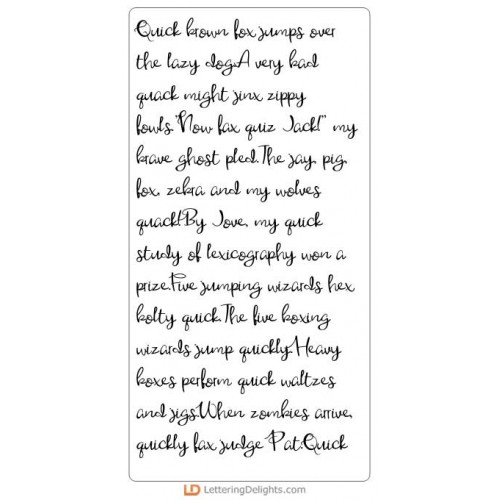 Quick brown fox jumps over
the lazy dog.A very bad
quack might jinx zippy
fowls."Now fax quiz Jack!" my
brave ghost pled.The jay, pig,
fox, zebra and my wolves
quack!By Jove, my quick
study of lexicography won a
prize.Five jumping wizards hex
bolty quick.The five boxing
wizards jump quickly.Heavy
boxes perform quick waltzes
and jigs.When zombies arrive,
quickly fax judge Pat.Quick
LD LetteringDelights.com